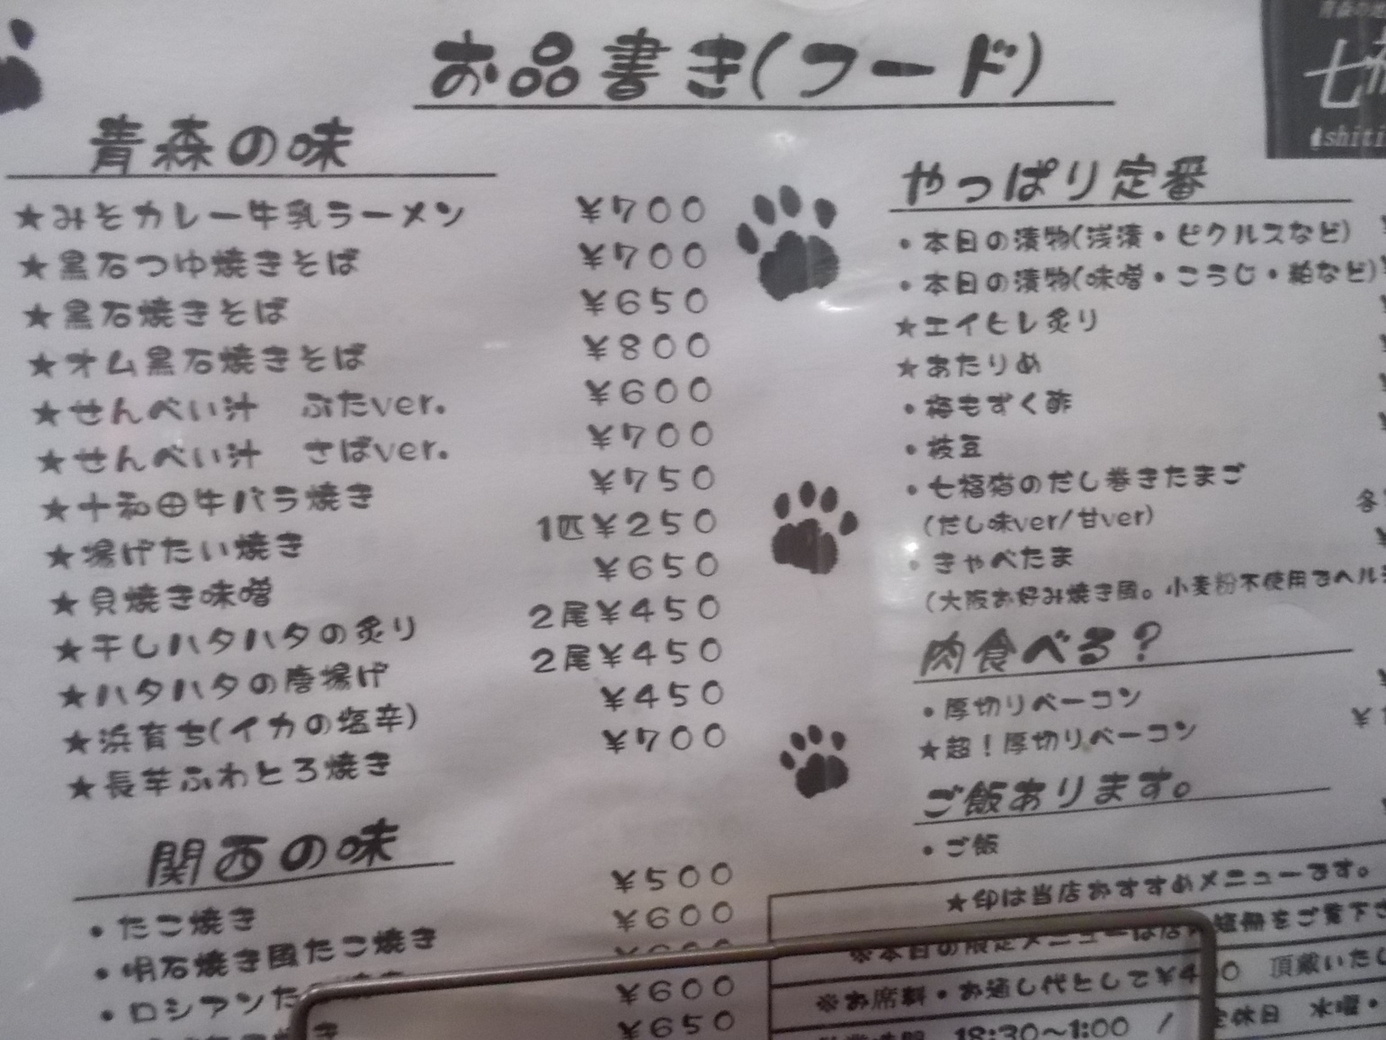 お品書き(フード)
青森の味
★みそカレー牛乳ラーメン ¥700
★黒石つゆ焼きそば ¥700
★黒石焼きそば ¥650
★オム黒石焼きそば ¥800
★せんべい汁 ぶたver. ¥600
★せんべい汁 さばver. ¥700
★十和田牛バラ焼き ¥750
★揚げたい焼き 1匹¥250
★貝焼き味噌 ¥650
★干しハタハタの炙り 2尾¥450
★ハタハタの唐揚げ 2尾¥450
★浜育ち(イカの塩辛) ¥450
★長芋ふわとろ焼き ¥700
関西の味
・たこ焼き ¥500
・明石焼き風たこ焼き ¥600
・ロシアンた
¥600
¥650
やっぱり定番
・本日の漬物(浅漬・ピクルスなど)
・本日の漬物(味噌・こうじ・粕など)
★エイヒレ炙り
★あたりめ
・梅もずく酢
・枝豆
・七福猫のだし巻きたまご
(だし味ver/甘ver) 各
・きゃべたま
(大阪お好み焼き風。小麦粉不使用でヘル
肉食べる?
・厚切りベーコン
★超!厚切りベーコン ¥
ご飯あります。
・ご飯
★印は当店おすすめメニューです。
※本日の限定メニューは店 短冊をご覧下さ
※お席料・お通し代として¥4 0 頂戴いたし
18:30〜1:00 / 定休日 水曜・
七
shiti